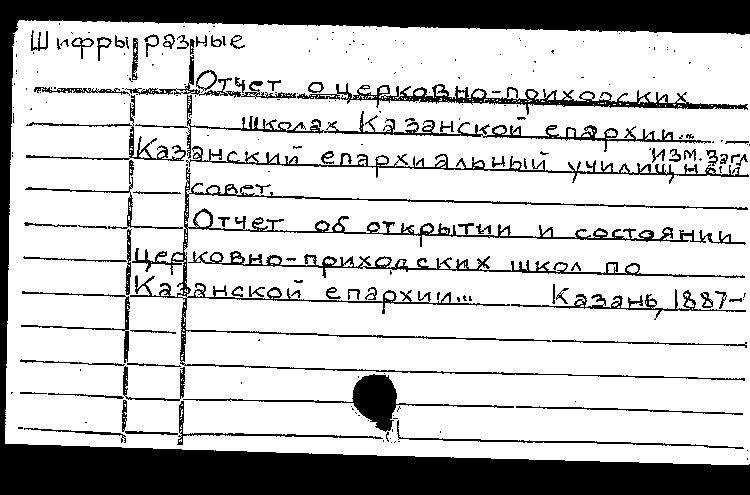 Шифры разные
Отчет о церковно-приходских
школах Казанской епархии...
изм. загл
Казанский епархиальный училищный
совет.
Отчет об открытии и состоянии
церковно-приходских школ по
Казанской епархии... Казань, 1887-